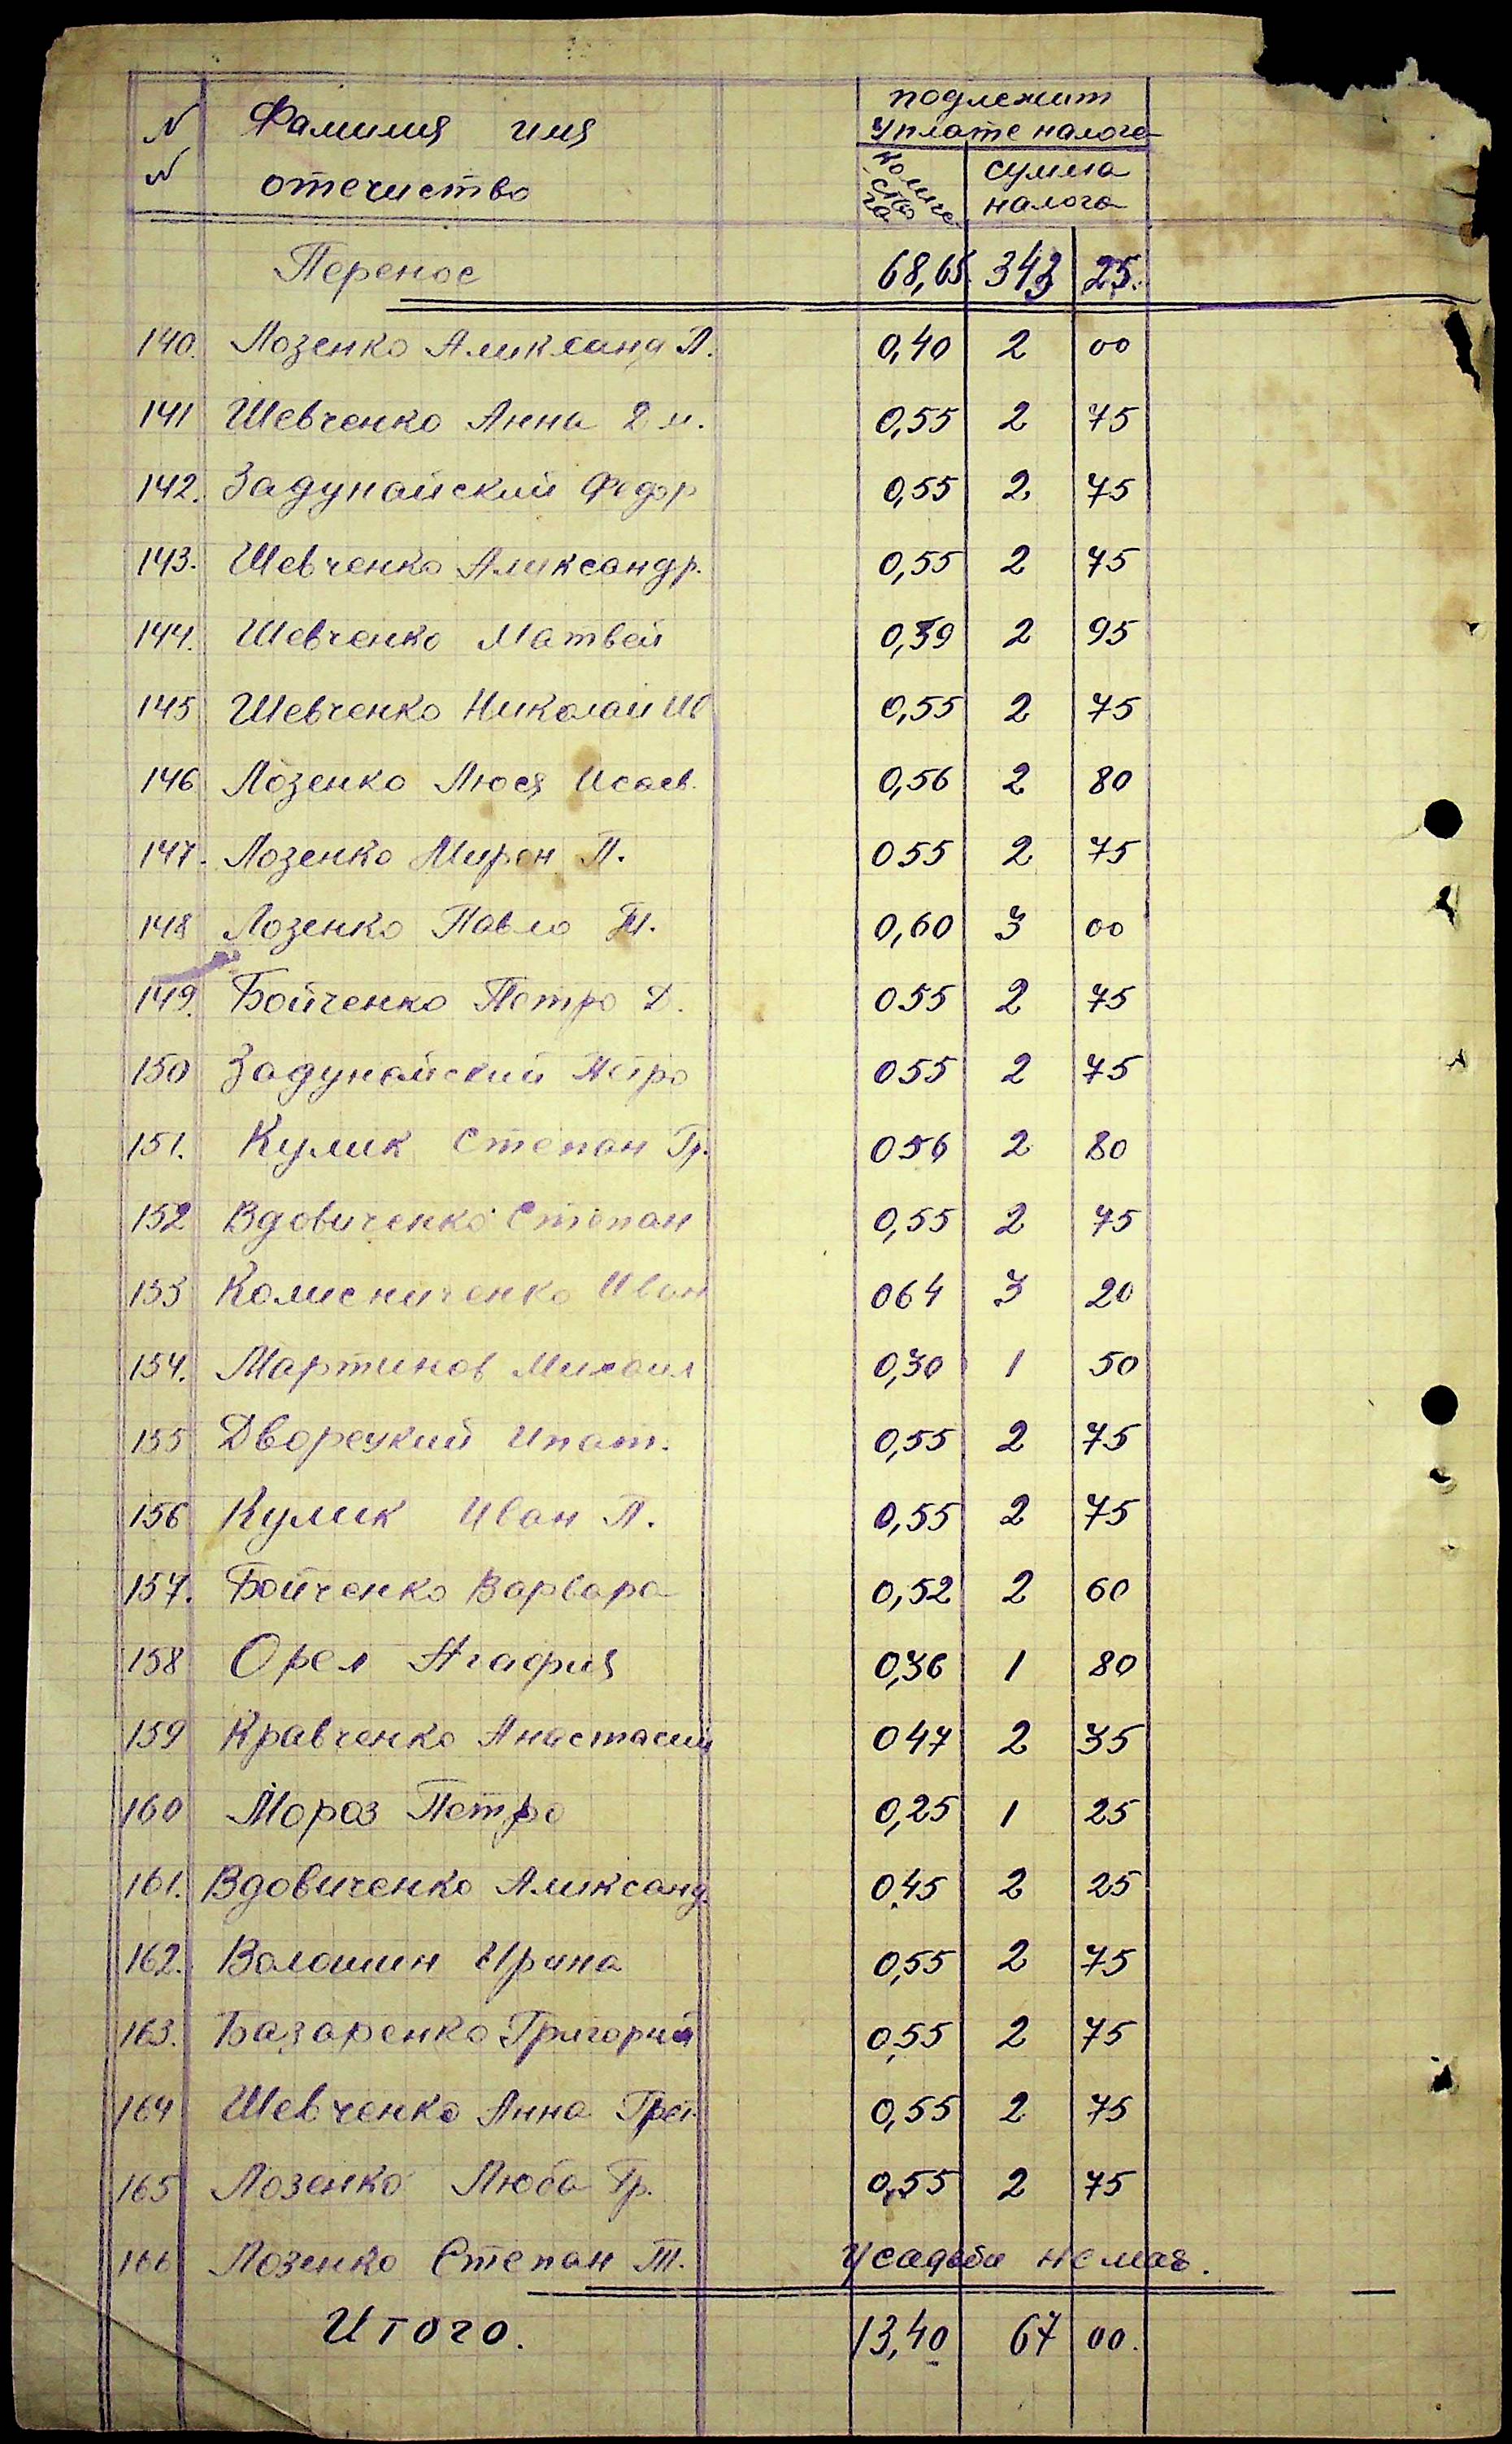 N Фамилия имя подлежит
N отечиство уплате налога
Количе ство га сумма налога
Перенос 68,65 343 25.
140. Лозенко Аликсанд П. 0,40 2 00
141 Шевченко Анна 2 м. 0,55 2 75
142. Задунайский Федор 0,55 2 75
143. Шевченко Аликсандр. 0,55 2 75
144. Шевченко Матвей 0,59 2 95
145 Шевченко Николай Ив 0,55 2 75
146 Лозенко Люся Исаев. 0,56 2 80
147. Лозенко Мирон П. 055 2 75
148 Лозенко Павло 0,60 3 00
149. Бойченко Петро Д. 055 2 75
150 Задунайский Петро 055 2 75
151. Кулик Степан Гр. 056 2 80
152 Вдовиченко Степан 0,55 2 75
153 Колисниченко Иван 064 3 20
154. Мартинов Михаил 0,30 1 50
155 Дворецкий Ипат. 0,55 2 75
156 Кулик Иван П. 0,55 2 75
157. Бойченко Варвара 0,52 2 60
158 Орел Агафия 0,36 1 80
159 Кравченко Анастасий 047 2 35
160 Мороз Петро 0,25 1 25
161. Вдовиченко Аликсанд. 0,45 2 25
162. Волошин Ирина 0,55 2 75
163. Базаренко Григорий 0,55 2 75
164 Шевченко Анна 0,55 2 75
165 Лозенко Люба Гр. 0,55 2 75
166 Лозенко Степан Т. Усадьби немає.
Итого. 13,40 67 00.